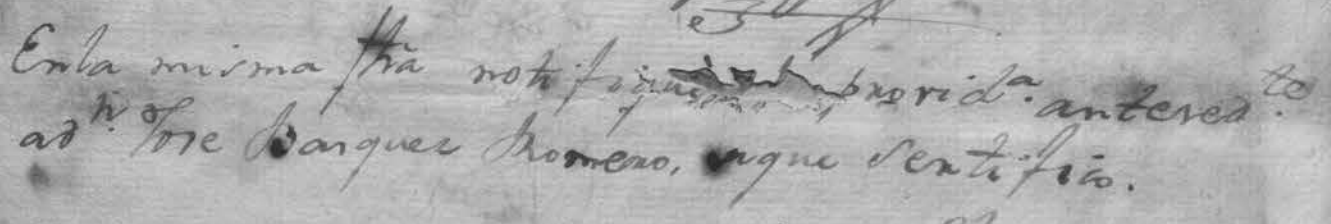 En la misma fha notifique la provid.a anteced.te
a D.n Jose Basquez Romero, aque Sertifico.